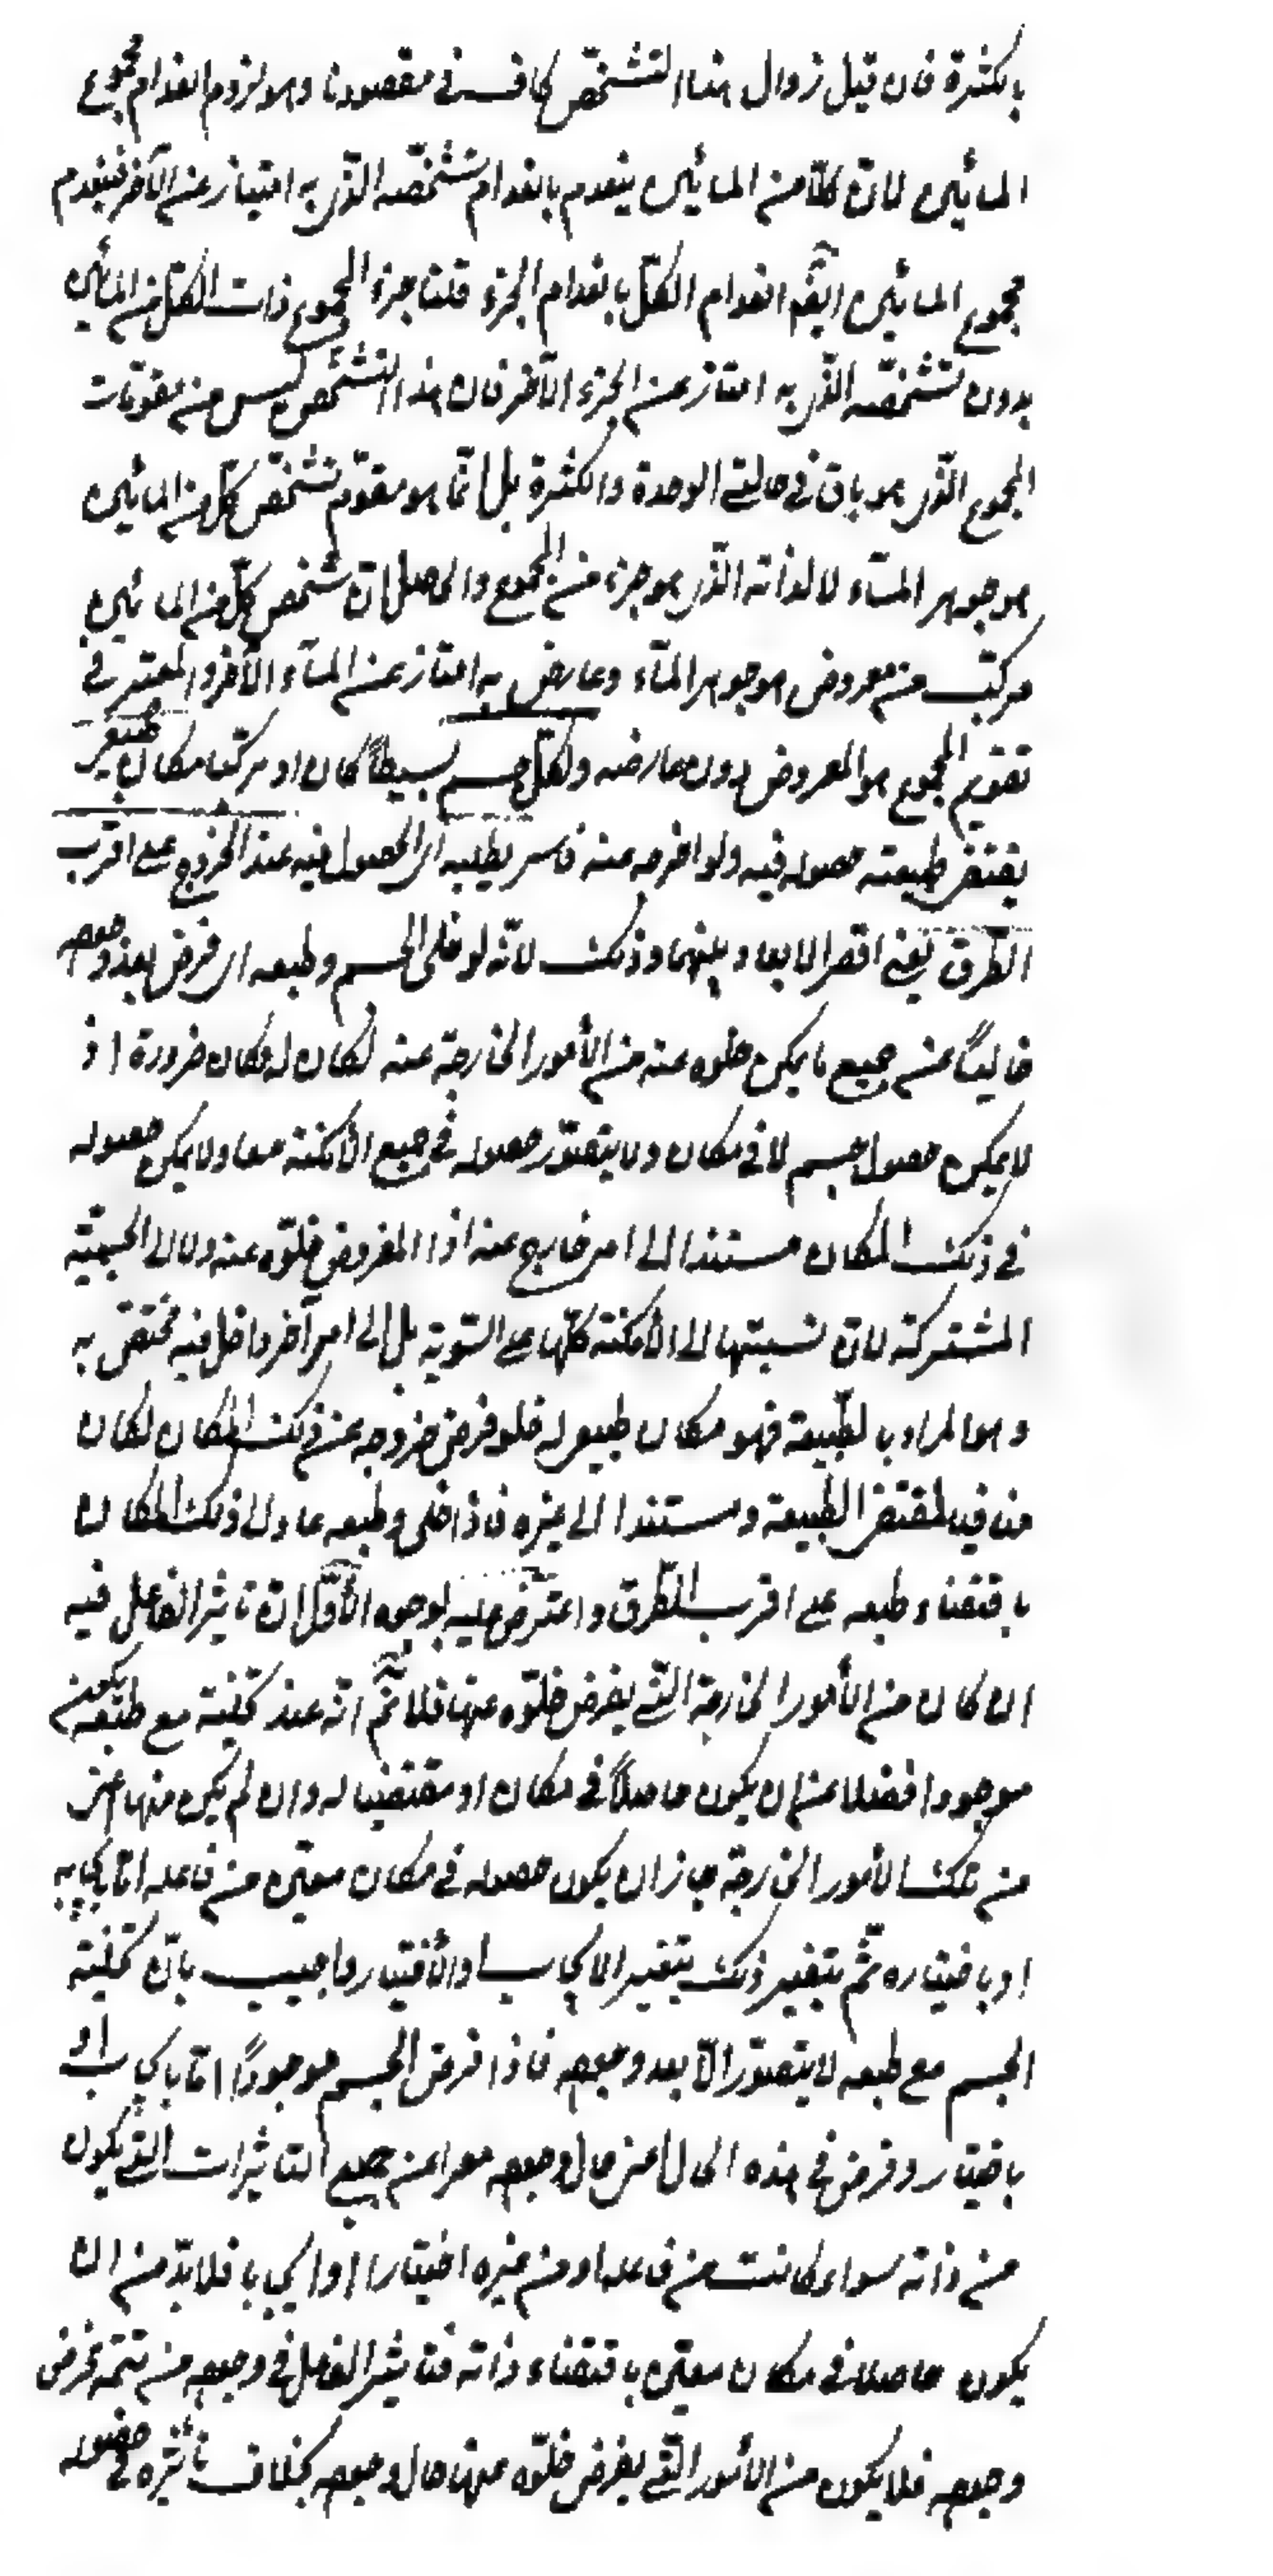 بالكثرة فان قيل زوال هذا التشخّص كاف في مقصودنا وهو لزوم انعدام مجموع
المائين لانّ كلّا من المائين ينعدم بانعدام تشخّصه الّذي به امتياز عن الآخر فينعدم
مجموع المائين ايضا انعدام الكلّ بانعدام الجزء قلنا جزء المجموع ذات الكلّ من المائين
بدون تشخّصه الّذي به امتاز عن الجزء الآخر فان هذا التشخّص ليس من مقوّمات
المجموع الّذي هو باق في حالتي الوحدة والكثرة بل انّما هو مقوّم تشخّص كلّ من المائين
هو جوهر المآء لا لذاته الّذي هو جزء من المجموع والحاصل انّ تشخص كلّ من المائين
مركّب من معروض هو جوهر المآء وعارض به امتاز عن المآء الآخر والمعتبر في
تقويم المجموع هو المعروض دون عارضه ولكلّ جسم بسيطاً كان او مركّبا مكان طبيعي
يقتضي طبيعته حصوله فيه ولو اخرجه عنه قاسر يطلبه اي الحصول فيه عند الخروج على اقرب
الطّرق يعني اقصر الابعاد بينهما وذلك لانّه لو خلى الجسم وطبعه اي فرض بعد وجوده
خالياً عن جميع ما يمكن خلوه عنه من الأمور الخارجة عنه لكان له مكان ضرورة اذ
لا يمكن حصول جسم لا في مكان ولا يتصوّر حصوله في جميع الأمكنة معا ولا يمكن حصوله
في ذلك المكان مستندا الى امر خارج عنه اذا المفروض خلوّه عنه ولا الى الجسميّة
المشتركة لانّ نسبتها الى الأمكنة كلّها على السّوية بل الى امر آخر داخل فيه مختصّ به
وهو المراد بالطّبيعة فهو مكان طبيعي له فلو فرض خروجه عن ذلك المكان لكان
منافيا لمقتضى الطّبيعة ومستندا الى غيره فاذا خلى وطبعه عاد الى ذلك المكان
باقتضاء طبعه على اقرب الطّرق واعترض عليه بوجوه الأوّل انّ تاثير الفاعل فيه
ان كان من الأمور الخارجة الّتي يفرض خلوّه عنها فلا نم انّه عند تخليته مع طبعه يكون
موجودا فضلا عن ان يكون حاصلاً في مكان او مقتضيا له وان لم يكن منها اعني
من تلك الأمور الخارجة جاز ان يكون حصوله في مكان معيّن من فاعله امّا بايجابه
او باختياره ثمّ بتغيير ذلك بتغير الايجاب او الأختيار واجيب بانّ تخلية
الجسم مع طبعه لا يتصوّر الّا بعد وجوده فاذا فرض الجسم موجوداً امّا بايجاب او
باختيار وفرض في هذه الحال اعني حال وجوده معرا عن جميع التاثيرات الّتي يكون
من ذاته سواء كانت من فاعله او من غيره اختيارا او ايجابا فلا بدّ من ان
يكون حاصلا في مكان معيّن باقتضاء ذاته فتاثير الفاعل في وجوده من تتمّة فرض
وجوده فلا يكون من الأمور الّتي يفرض خلوّه عنها حال وجوده بخلاف تأثيره في حصوله